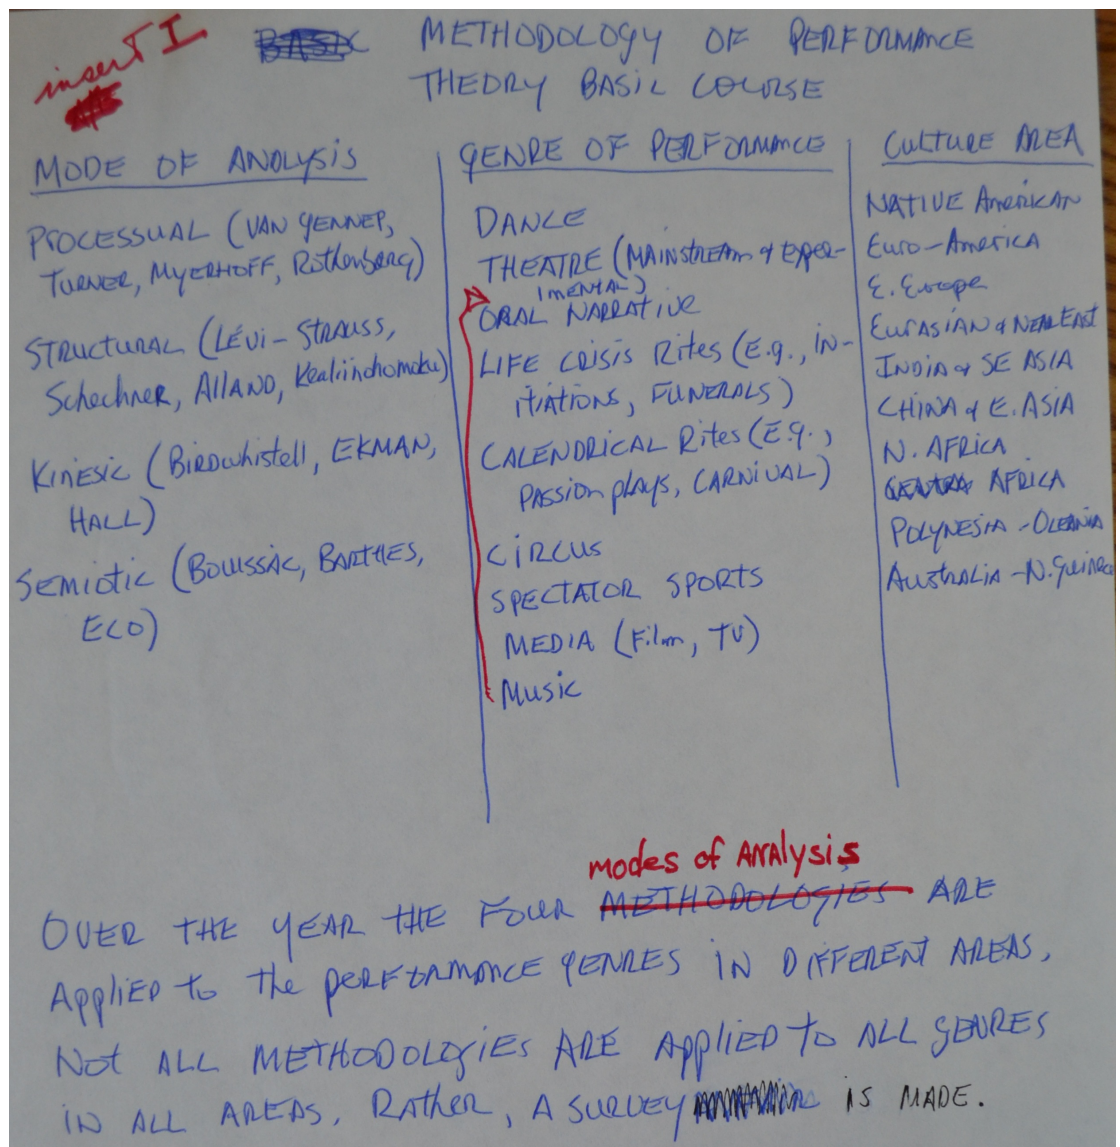 insert I
METHODOLOGY OF PERFORMANCE
THEORY BASIC COURSE
MODE OF ANALYSIS
PROCESSUAL (VAN GENNEP,
TURNER, MYERHOFF, Rothenberg)
STRUCTURAL (LÉVI-STRAUSS,
Schechner, AllAND, Kealiinohomoku)
KINESIC (BIRDwhistell, EKMAN,
HALL)
SEMIOTIC (BOUISSAC, BARTHES,
ECO)
GENRE OF PERFORMANCE
DANCE
THEATRE (MAINSTREAM & EXPER-
IMENTAL)
ORAL NARRATIVE
LIFE CRISIS Rites (E.g., IN-
ITIATIONS, FUNERALS)
CALENDRICAL Rites (E.g.,
PASSION plays, CARNIVAL)
CIRCUS
SPECTATOR SPORTS
MEDIA (Film, TV)
MUSIC
CULTURE AREA
NATIVE AmERICAN
Euro-America
E. Europe
EURASIAN & NEAR EAST
INDIA & SE ASIA
CHINA & E. ASIA
N. AFRICA
AFRICA
POLYNESIA - OCEANIA
AUSTRALIA - N. guinea
modes of ANAlysis
OVER THE YEAR THE FOUR METHODOLOGIES ARE
AppliED to the pERFORMANCE gENRES IN DIFFERENT AREAS.
Not ALL METHODOLOGIES ARE AppliED to ALL GENRES
IN ALL AREAS. Rather, A SURVEY IS MADE.